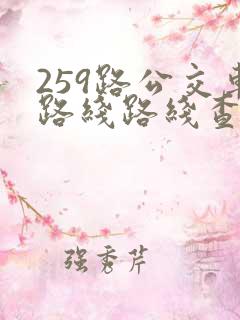 259路公交车
路线路线查
强秀芹